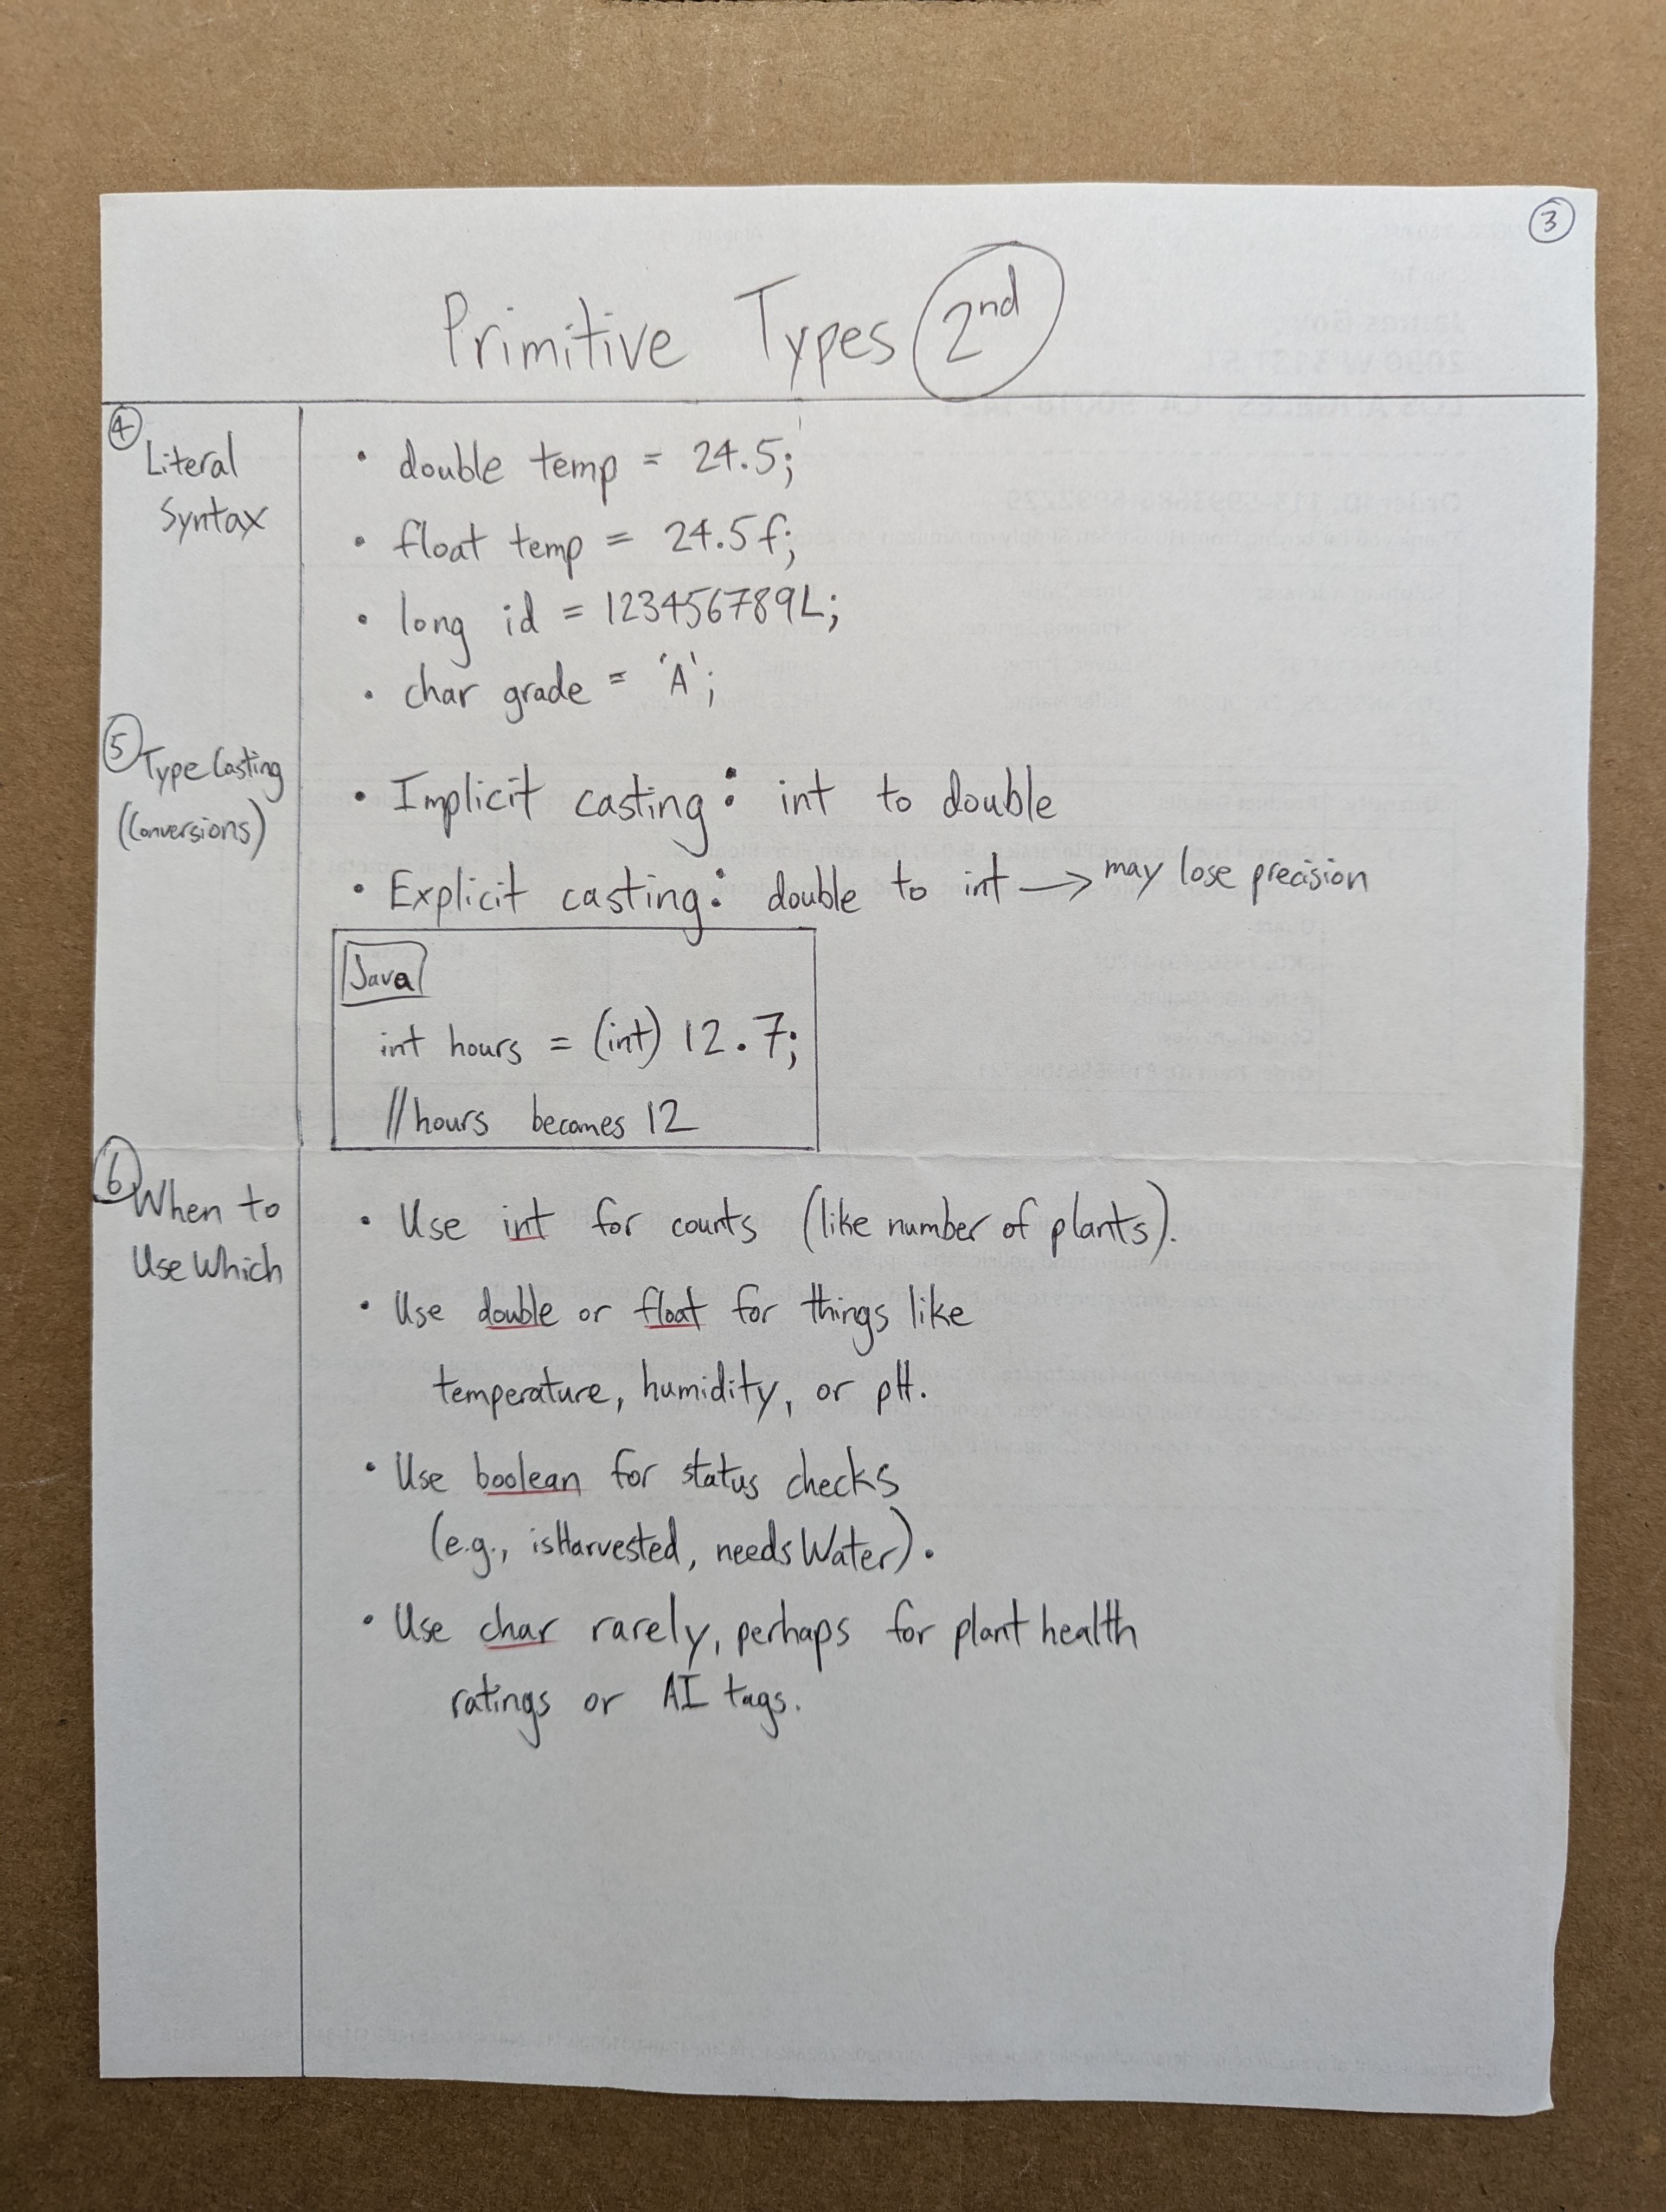 ③
Primitive Types 2nd
④ Literal
Syntax
• double temp = 24.5;
• float temp = 24.5f;
• long id = 123456789L;
• char grade = 'A';
⑤ Type Casting
(Conversions)
• Implicit casting: int to double
• Explicit casting: double to int → may lose precision
Java
int hours = (int) 12.7;
//hours becomes 12
⑥ When to
Use Which
• Use int for counts (like number of plants).
• Use double or float for things like
temperature, humidity, or pH.
• Use boolean for status checks
(e.g., isHarvested, needsWater).
• Use char rarely, perhaps for plant health
ratings or AI tags.